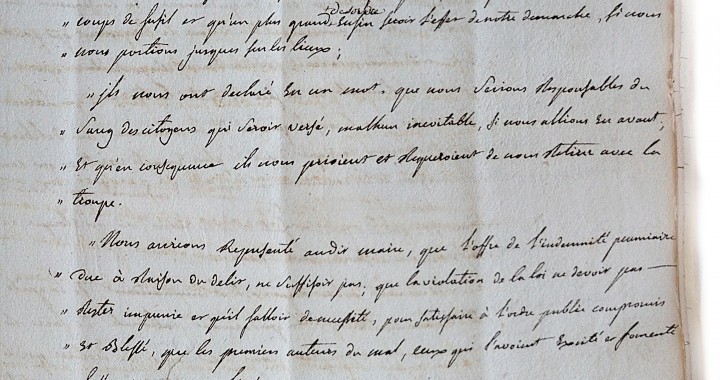 desordre
" coups de fusil et qu'un plus grand enfin seroit l'effet de notre demarche, si nous
" nous portions jusques sur les lieux;
" ils nous ont declaré en un mot, que nous serions responsables du
" sang des citoyens qui seroit versé, malheur inevitable, si nous allions en avant,
" et qu'en consequence ils nous prioient et requeroient de nous retirer avec la
" troupe.
" Nous aurions representé audit maire, que l'offre de l'indemnité pecuniaire
" due à raison du delit, ne suffisoit pas; que la violation de la loi ne devoit pas —
" rester impunie et qu'il falloit de necessité, pour satisfaire à l'ordre public compromis
" et blessé, que les premiers auteurs du mal, ceux qui l'avoient excité et fomenté